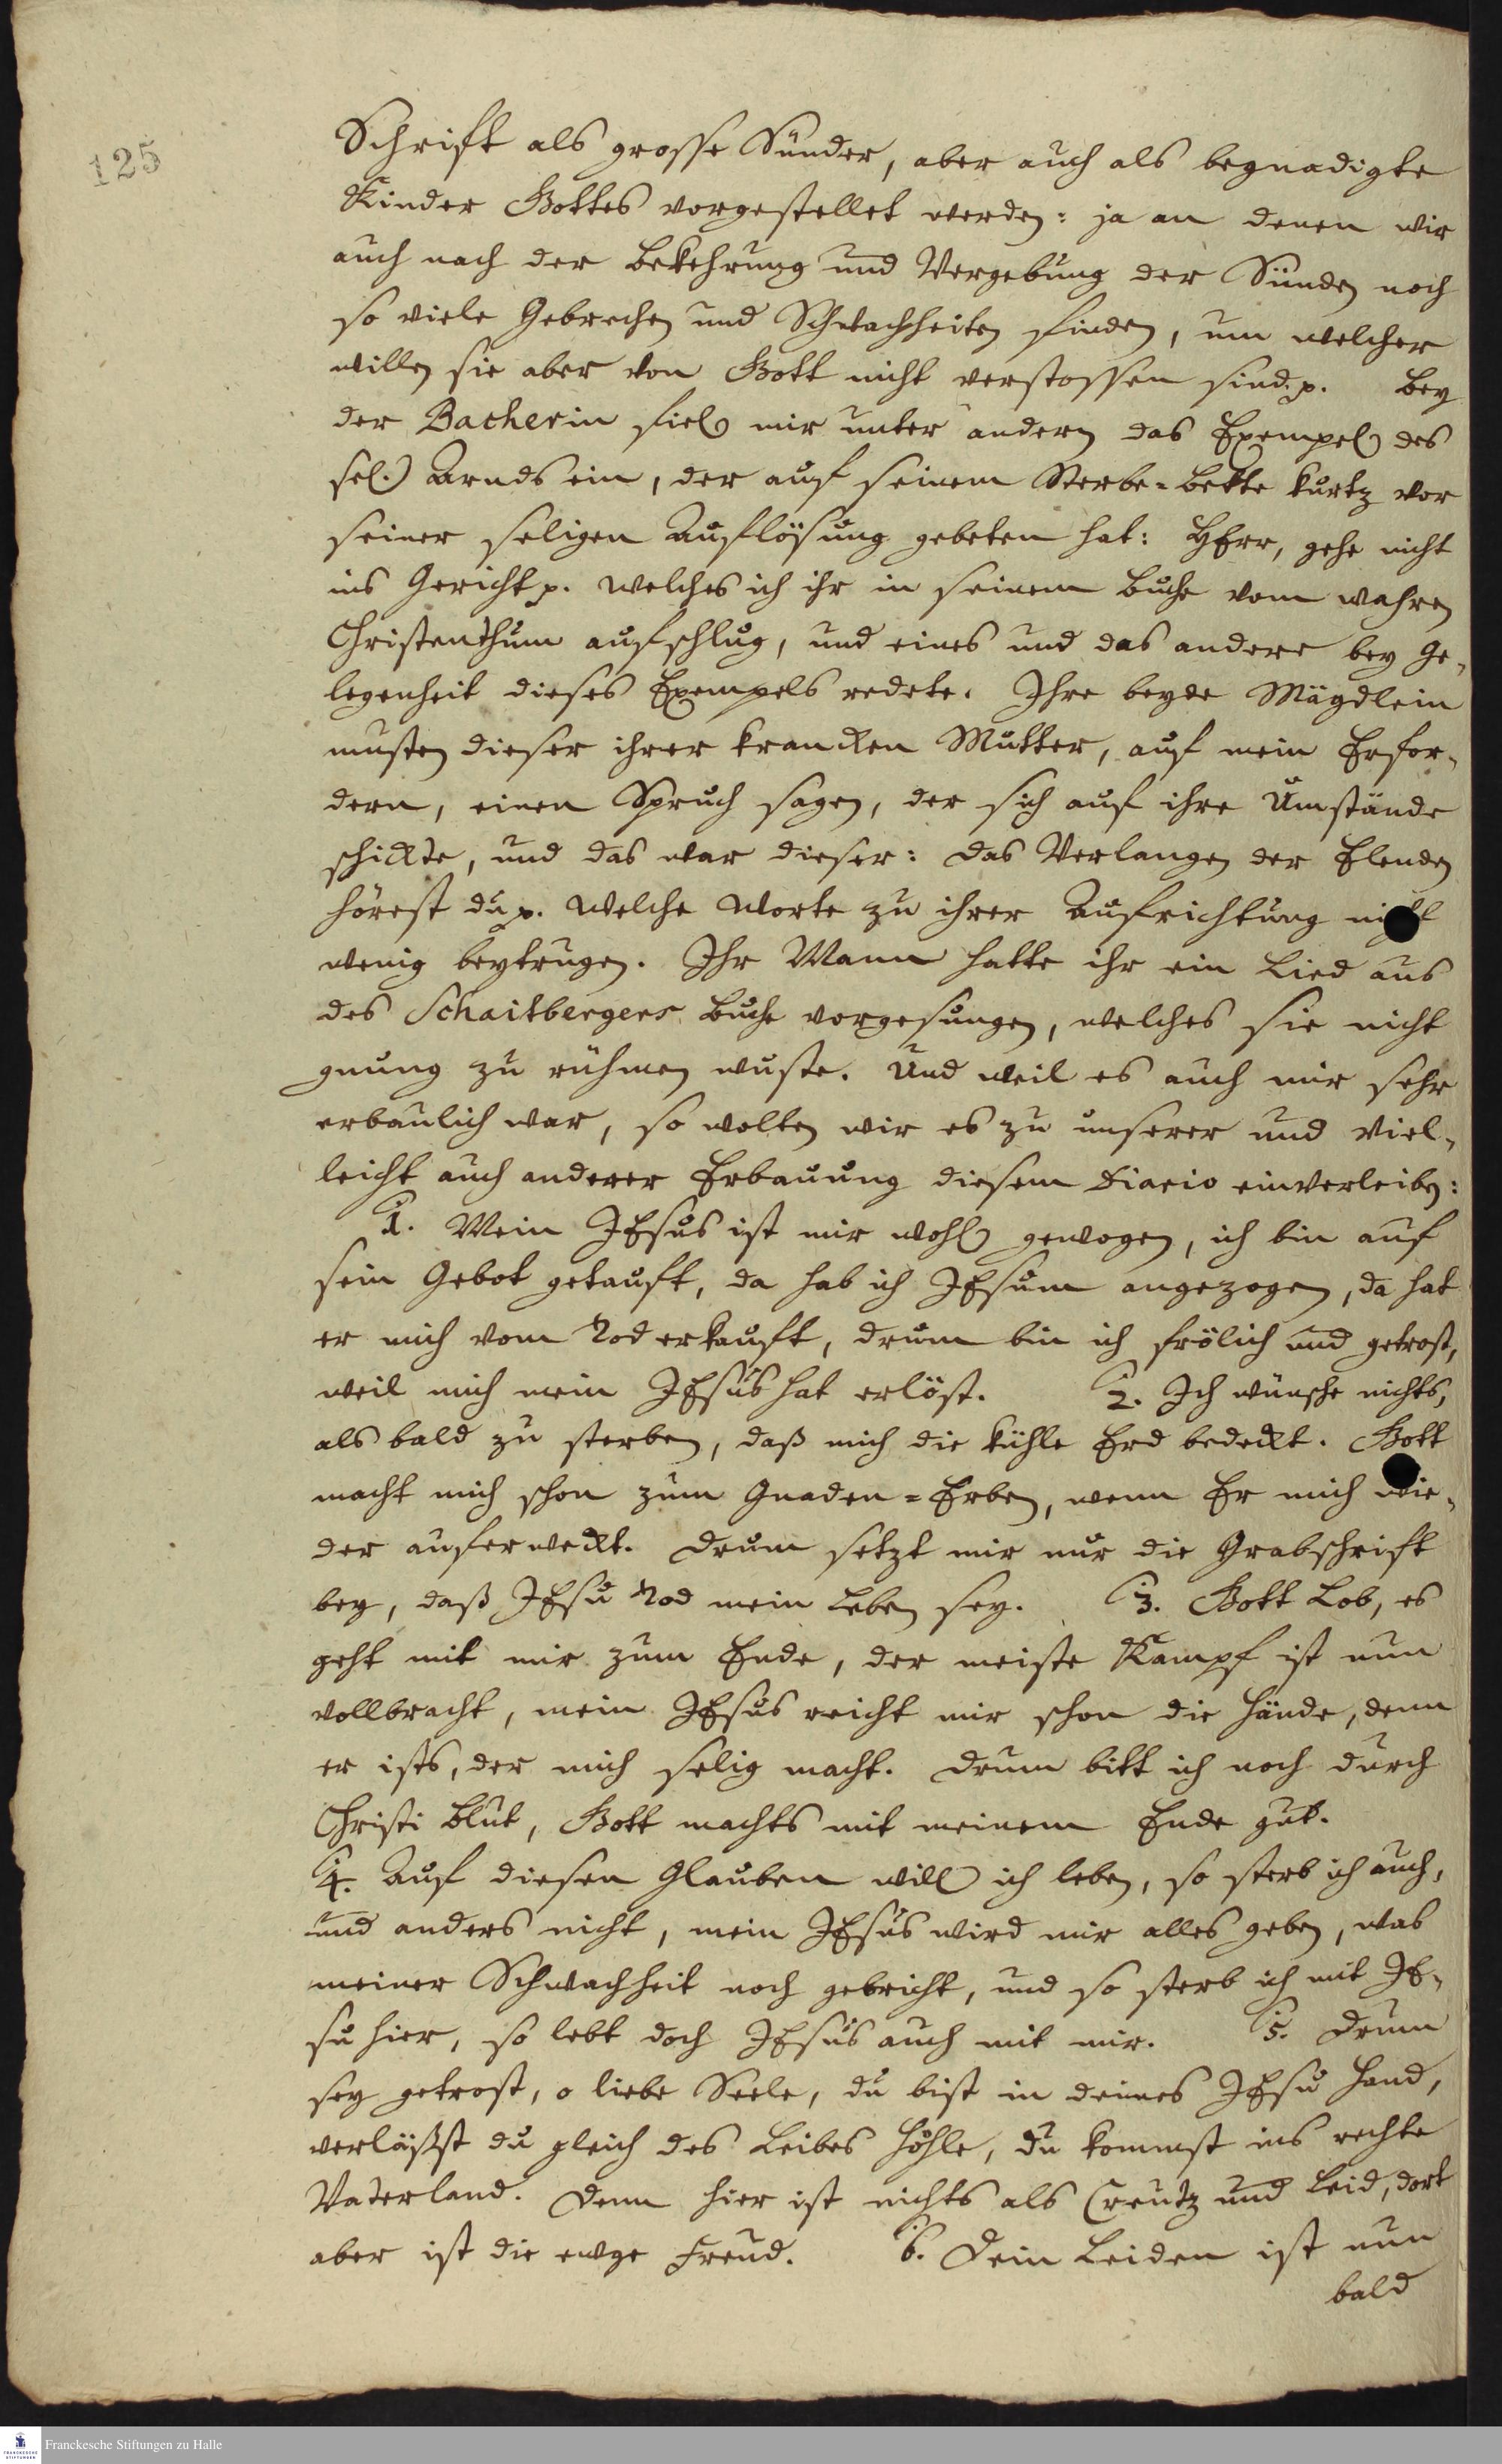 125
Schrifft als grosse Sünder, aber auch als begnadigte
Kinder Gottes vorgestellet werden: ja an denen wir
auch nach der Bekehrung und Vergebung der Sünden noch
so viele Gebrechen und Schwachheiten finden, um welcher
willen sie aber von Gott nicht verstossen sind p. Bey
der Bacherin fiel mir unter andern das Exempel des
sel. Arnds ein, der auf seinem Sterbe-Bette kurtz vor
seiner seligen Auflösung gebeten hat: HErr, gehe nicht
ins Gericht p. welches ich ihr in seinem Buche vom wahren
Christenthum aufschlug, und eines und das andere bey Ge-
legenheit dieses Exempels redete. Ihre beyde Mägdlein
musten dieser ihrer krancken Mutter, auf mein Erfor-
dern, einen Spruch sagen, der sich auf ihre Umstände
schickte, und das war dieser: Das Verlangen der Elenden
hörest du p. welche Worte zu ihrer Aufrichtung nicht
wenig beytrugen. Ihr Mann hatte ihr ein Lied aus
des Schaitbergers Buche vorgesungen, welches sie nicht
gnung zu rühmen wuste. Und weil es auch mir sehr
erbaulich war, so wolten wir es zu unserer und viel-
leicht auch anderer Erbauung diesem Diario einverleiben:
1. Mein JEsus ist mir wohl gewogen, ich bin auf
sein Gebot getauft, da hab ich JEsum angezogen, da hat
er mich vom Tod erkauft, drum bin ich frölich und getrost,
weil mich mein JEsus hat erlöst. 2. Ich wünsche nichts,
als bald zu sterben, daß mich die kühle Erd bedeckt. Gott
macht mich schon zum Gnaden-Erben, wenn Er mich wie-
der auferweckt. Drum setzt mir nur die Grabschrift
bey, daß JEsu Tod mein Leben sey. 3. Gott Lob, es
geht mit mir zum Ende, der meiste Kampf ist nun
vollbracht, mein JEsus reicht mir schon die Hände, denn
er ists, der mich selig macht. Drum bitt ich noch durch
Christi Blut, Gott machts mit meinem Ende gut.
4. Auf diesen Glauben will ich leben, so sterb ich auch,
und anders nicht, mein JEsus wird mir alles geben, was
meiner Schwachheit noch gebricht, und so sterb ich mit JE-
su hier, so lebt doch JEsus auch mit mir. 5. Drum
sey getrost, o liebe Seele, du bist in deines JEsu Hand,
verläßst du gleich des Leibes Höhle, du kommst ins rechte
Vaterland. Denn hier ist nichts als Creutz und Leid, dort
aber ist die ewge Freud. 6. Dein Leiden ist nun
bald
Franckesche Stiftungen zu Halle